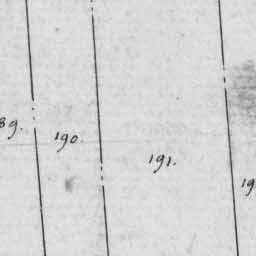 89.
190.
191.
19